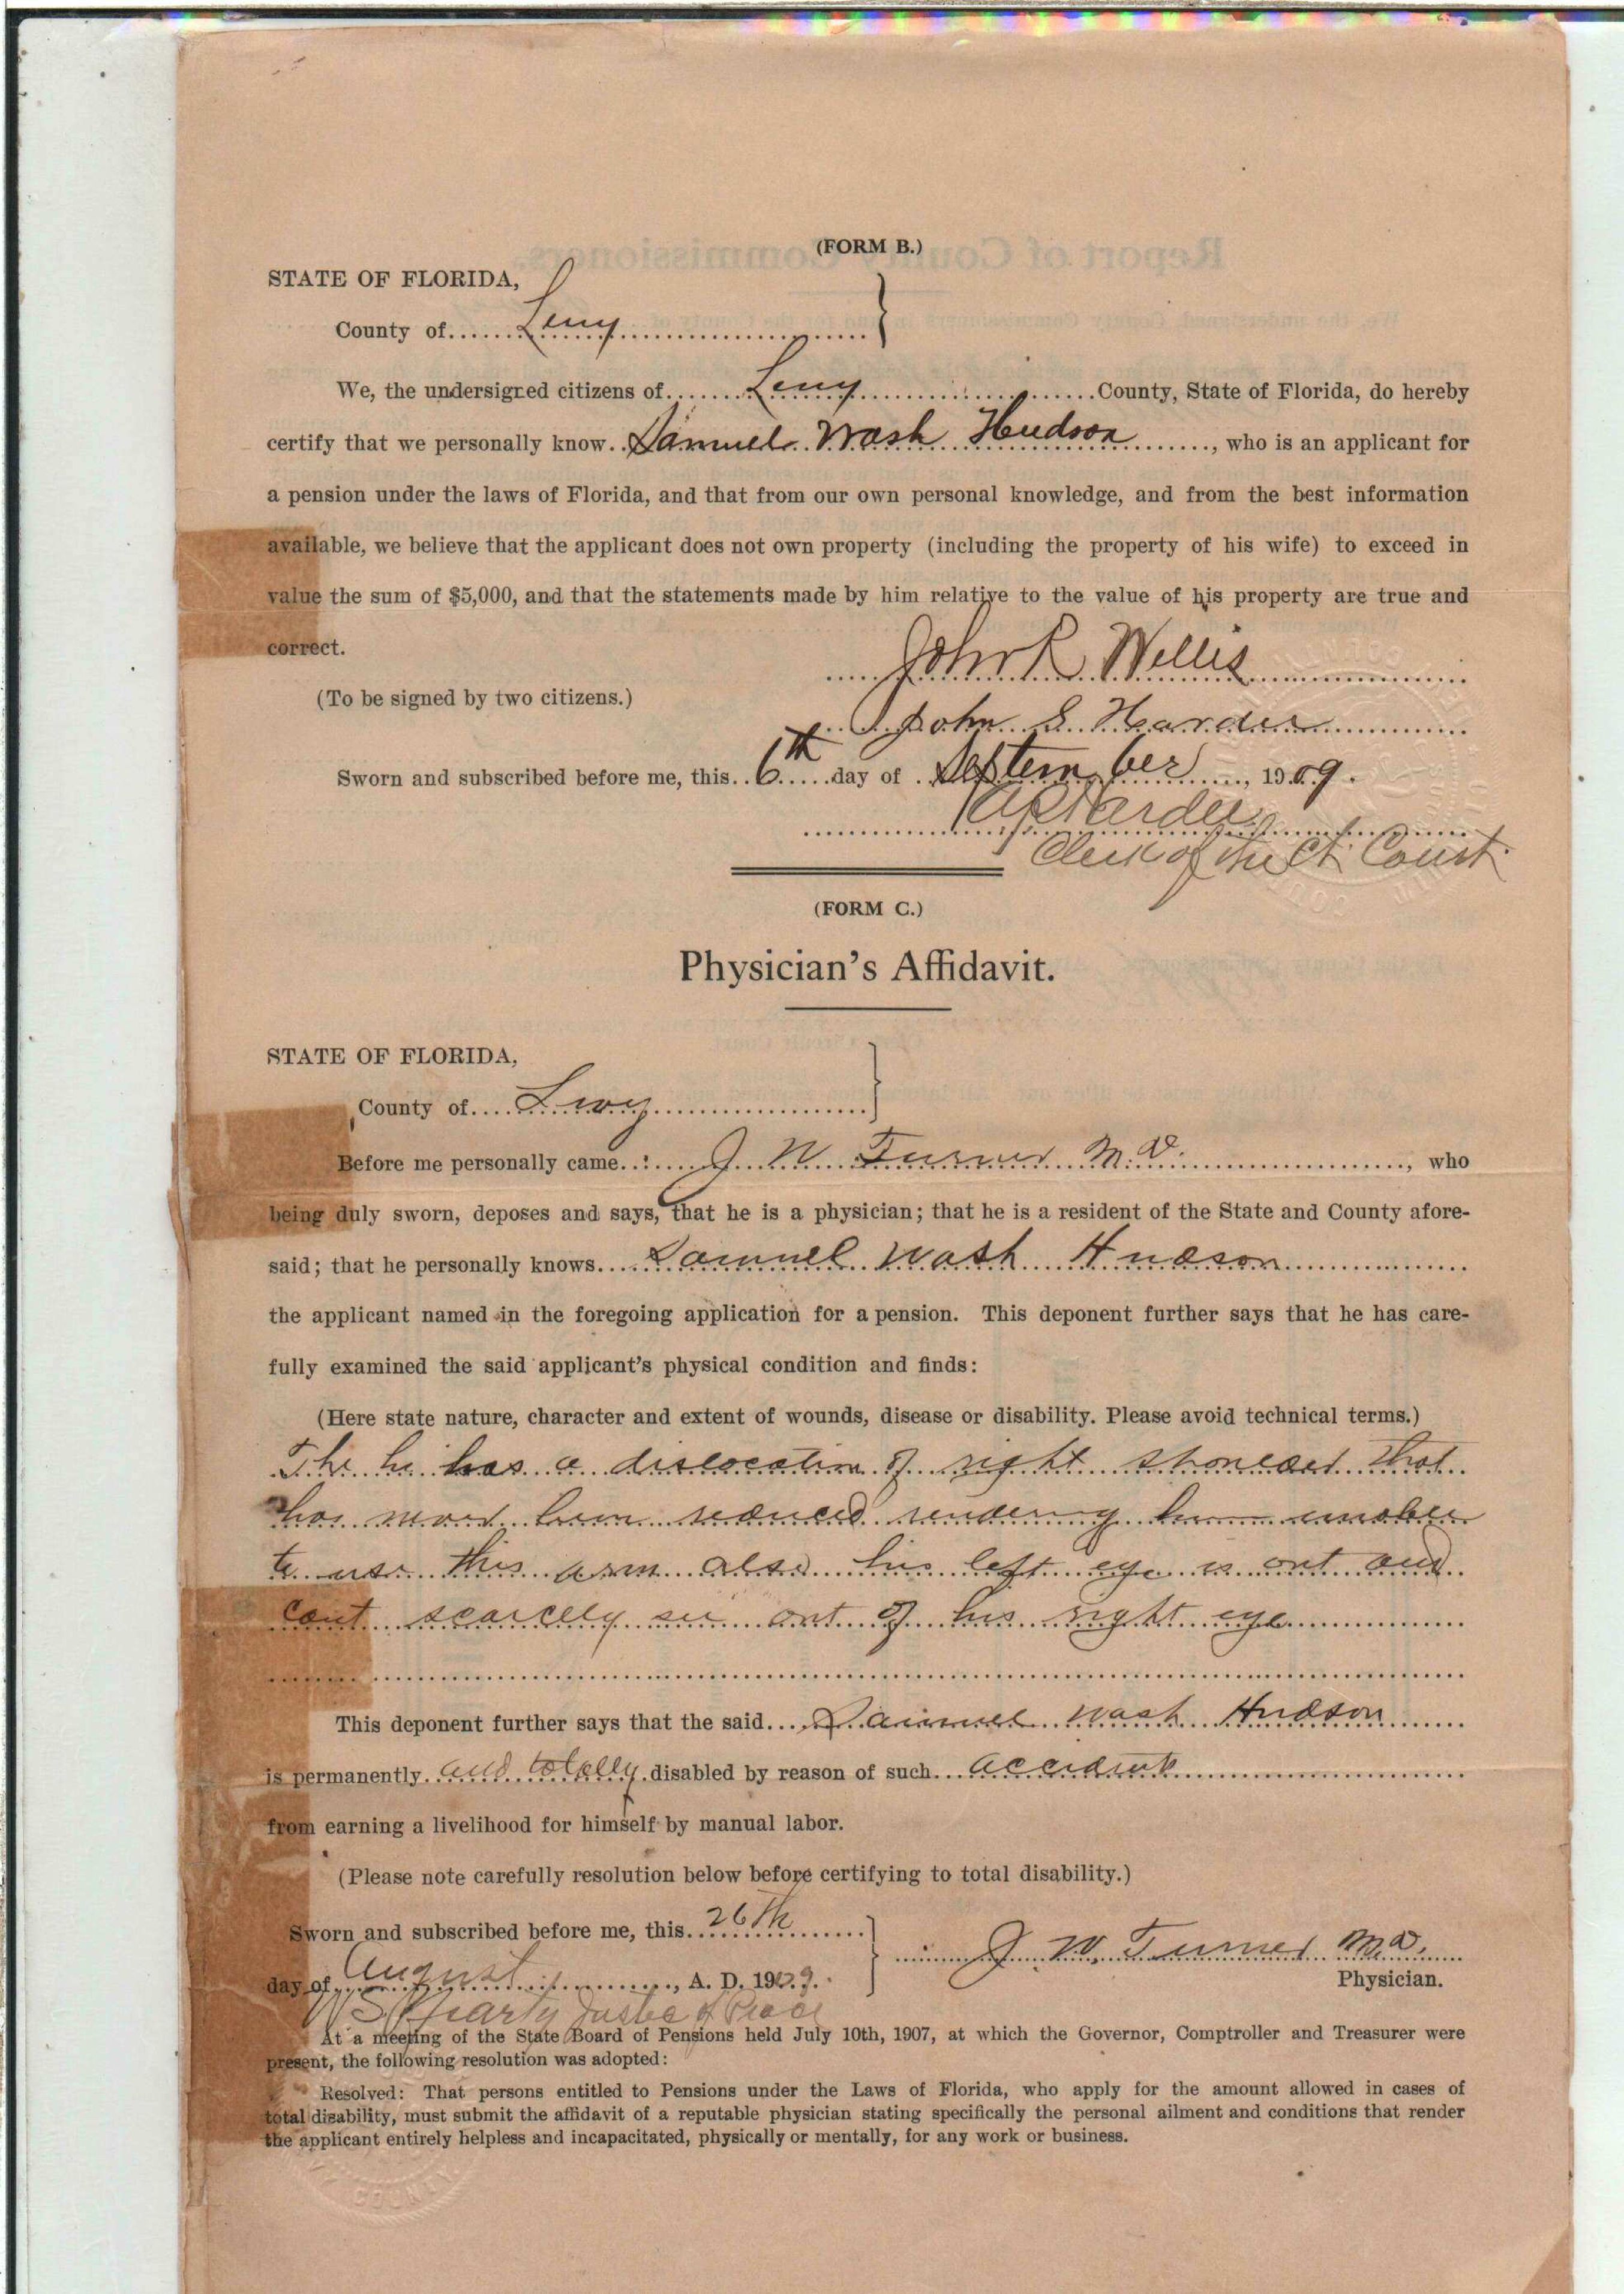 (FORM B.)
STATE OF FLORIDA,
County of Levy
We, the undersigned citizens of Levy County, State of Florida, do hereby
certify that we personally know Samuel Wash Hudson, who is an applicant for
a pension under the laws of Florida, and that from our own personal knowledge, and from the best information
available, we believe that the applicant does not own property (including the property of his wife) to exceed in
value the sum of $5,000, and that the statements made by him relative to the value of his property are true and
correct.
John R Willis
(To be signed by two citizens.)
John S. Hardee
Sworn and subscribed before me, this 6th day of September, 1909.
Hardee
Clerk of the Ct. Court
(FORM C.)
Physician's Affidavit.
STATE OF FLORIDA,
County of Levy
Before me personally came J W Turner M.D., who
being duly sworn, deposes and says, that he is a physician; that he is a resident of the State and County afore-
said; that he personally knows Samuel Wash Hudson
the applicant named in the foregoing application for a pension. This deponent further says that he has care-
fully examined the said applicant's physical condition and finds:
(Here state nature, character and extent of wounds, disease or disability. Please avoid technical terms.)
The he has a dislocation of right shoulder that
has never been reduced rendering him unable
to use this arm also his left eye is out and
cant scarcely see out of his right eye
This deponent further says that the said Samuel Wash Hudson
is permanently and totally disabled by reason of such accident
from earning a livelihood for himself by manual labor.
(Please note carefully resolution below before certifying to total disability.)
Sworn and subscribed before me, this 26th
J. W. Turner M.D.
day of August, A. D. 1909.
Physician.
of Peace
At a meeting of the State Board of Pensions held July 10th, 1907, at which the Governor, Comptroller and Treasurer were
present, the following resolution was adopted:
Resolved: That persons entitled to Pensions under the Laws of Florida, who apply for the amount allowed in cases of
total disability, must submit the affidavit of a reputable physician stating specifically the personal ailment and conditions that render
the applicant entirely helpless and incapacitated, physically or mentally, for any work or business.
COUNTY